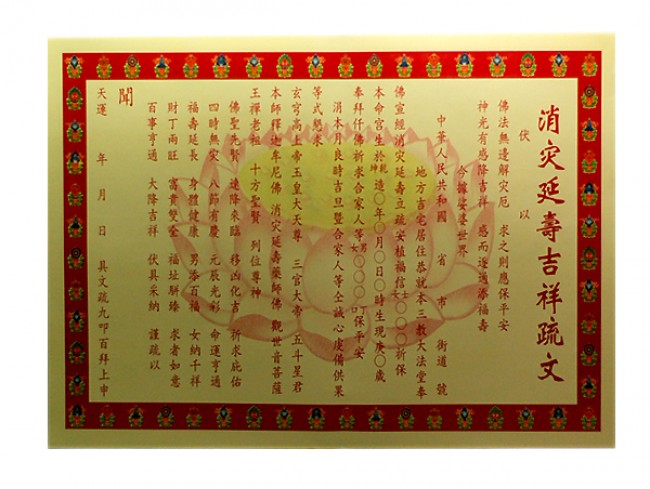 消灾延壽吉祥疏文
伏以
佛法無邊解灾厄 求之則應保平安
神光有感降吉祥 感而遂通添福壽
今據娑婆世界
中華人民共和國 省 市 街道 號
地方吉宅居住恭就本三教大法堂奉
佛宣經消灾延壽立疏安植福信 〇〇〇祈保
本命宮生於乾坤造〇年〇月〇日〇時生現庚〇歲
奉拜仟佛祈求合家人等男女〇〇〇口保平安
涓本月良時吉旦暨合家人等仝誠心虔備供果
等式懇求
玄穹高上帝玉皇大天尊 三官大帝 五斗星君
本師釋迦牟尼佛 消灾延壽藥師佛 觀世音菩薩
王禪老祖 十方聖賢 列位尊神
佛聖先賢 速降來臨 移凶化吉 祈求庇佑
四時無灾 八節有慶 元辰光彩 命運亨通
福壽延長 身體健康 男添百福 女納千祥
財丁兩旺 富貴雙全 福址駢臻 求者如意
百事亨通 大降吉祥 伏具采納 謹疏以
聞
天運 年 月 日 具文疏九叩百拜上申